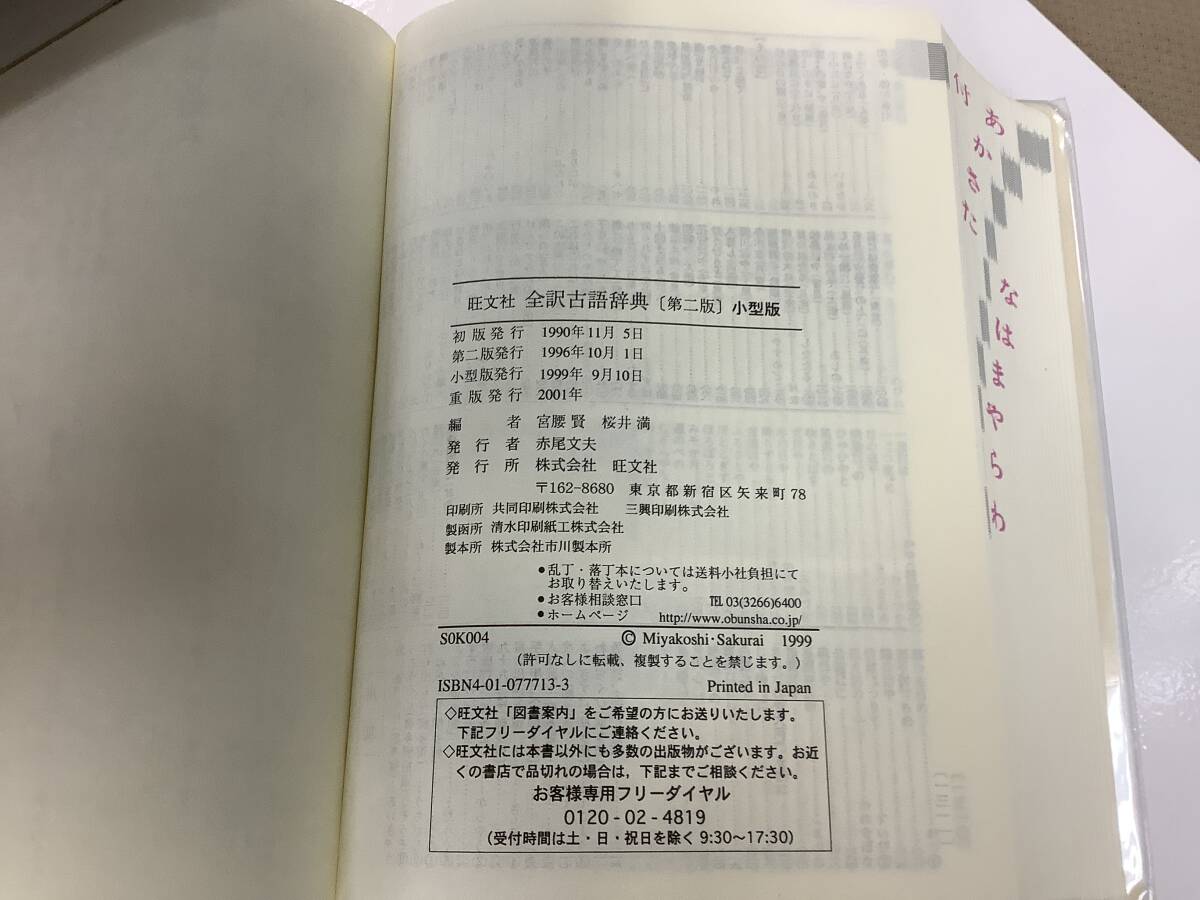 旺文社 全訳古語辞典〔第二版〕小型版
初版発行 1990年11月 5日
第二版発行 1996年10月 1日
小型版発行 1999年 9月10日
重版発行 2001年
編者 宮腰 賢 桜井 満
発行者 赤尾文夫
発行所 株式会社 旺文社
〒162-8680 東京都新宿区矢来町78
印刷所 共同印刷株式会社 三興印刷株式会社
製函所 清水印刷紙工株式会社
製本所 株式会社市川製本所
●乱丁・落丁本については送料小社負担にて
お取り替えいたします。
●お客様相談窓口 TEL 03(3266)6400
●ホームページ http://www.obunsha.co.jp/
S0K004 © Miyakoshi・Sakurai 1999
(許可なしに転載、複製することを禁じます。)
ISBN4-01-077713-3 Printed in Japan
◇旺文社「図書案内」をご希望の方にお送りいたします。
下記フリーダイヤルにご連絡ください。
◇旺文社には本書以外にも多数の出版物がございます。お近
くの書店で品切れの場合は，下記までご相談ください。
お客様専用フリーダイヤル
0120-02-4819
(受付時間は土・日・祝日を除く 9:30〜17:30)
付
あかさた
なはまやらわ